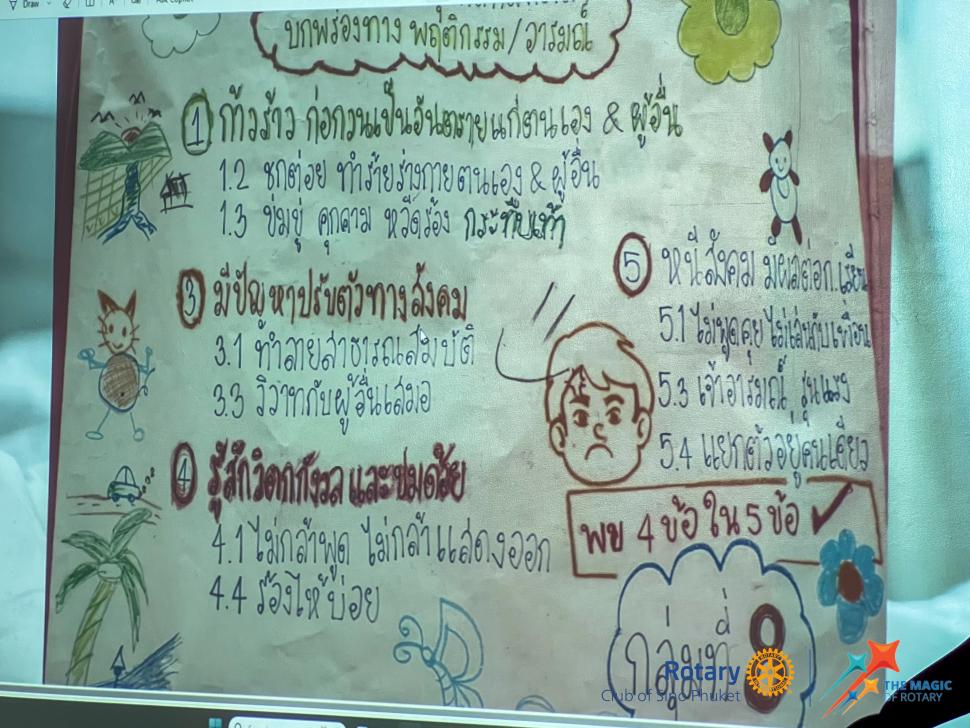 Draw
บกพร่องทาง พฤติกรรม/อารมณ์
1 ก้าวร้าว ก่อกวนเป็นอันตรายแก่ตนเอง & ผู้อื่น
1.2 ชกต่อย ทำร้ายร่างกายตนเอง & ผู้อื่น
1.3 ข่มขู่ คุกคาม หวีดร้อง กระทืบเท้า
3 มีปัญหาปรับตัวทางสังคม
3.1 ทำลายสาธารณสมบัติ
3.3 วิวาทกับผู้อื่นเสมอ
4 รู้สึกวิตกกังวล และปมด้อย
4.1 ไม่กล้าพูด ไม่กล้าแสดงออก
4.4 ร้องไห้บ่อย
5 หนีสังคม มีผลต่อก.เรียน
5.1 ไม่พูดคุย ไม่เล่นกับเพื่อน
5.3 เจ้าอารมณ์ รุนแรง
5.4 แยกตัวอยู่คนเดียว
พบ 4 ข้อ ใน 5 ข้อ
กลุ่มที่ 8
Rotary
Club of Sino Phuket
THE MAGIC
OF ROTARY